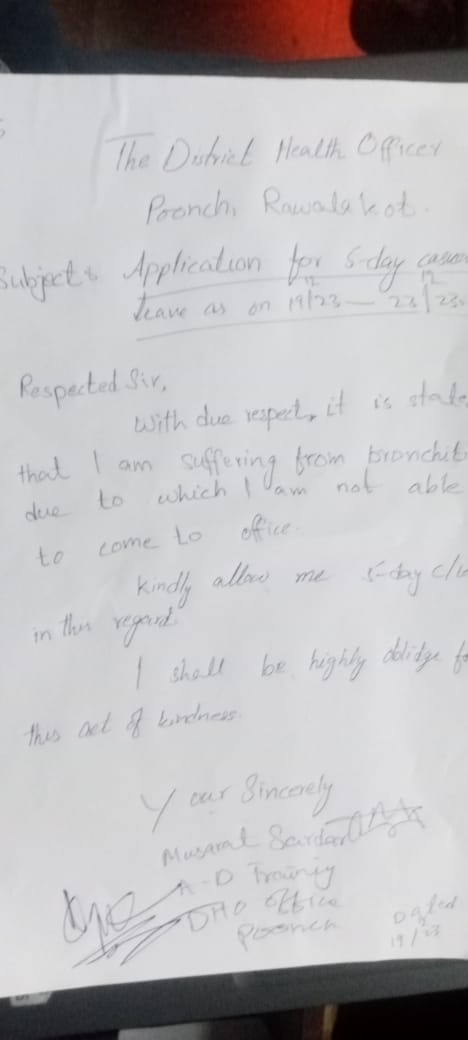 The District Health Officer
Poonch, Rawalakot.
Subject: Application for 5-day casua
leave as on 19/12/23 — 23/12/23.
Respected Sir,
With due respect, it is state
that I am suffering from bronchit
due to which I am not able
to come to office.
kindly allow me 5-day c/le
in this regard.
I shall be highly oblidge fo
this act of kindness.
Your Sincerely
Musarat Sardar
A-D Training
DHO Office
Poonch
Dated
19/12/23